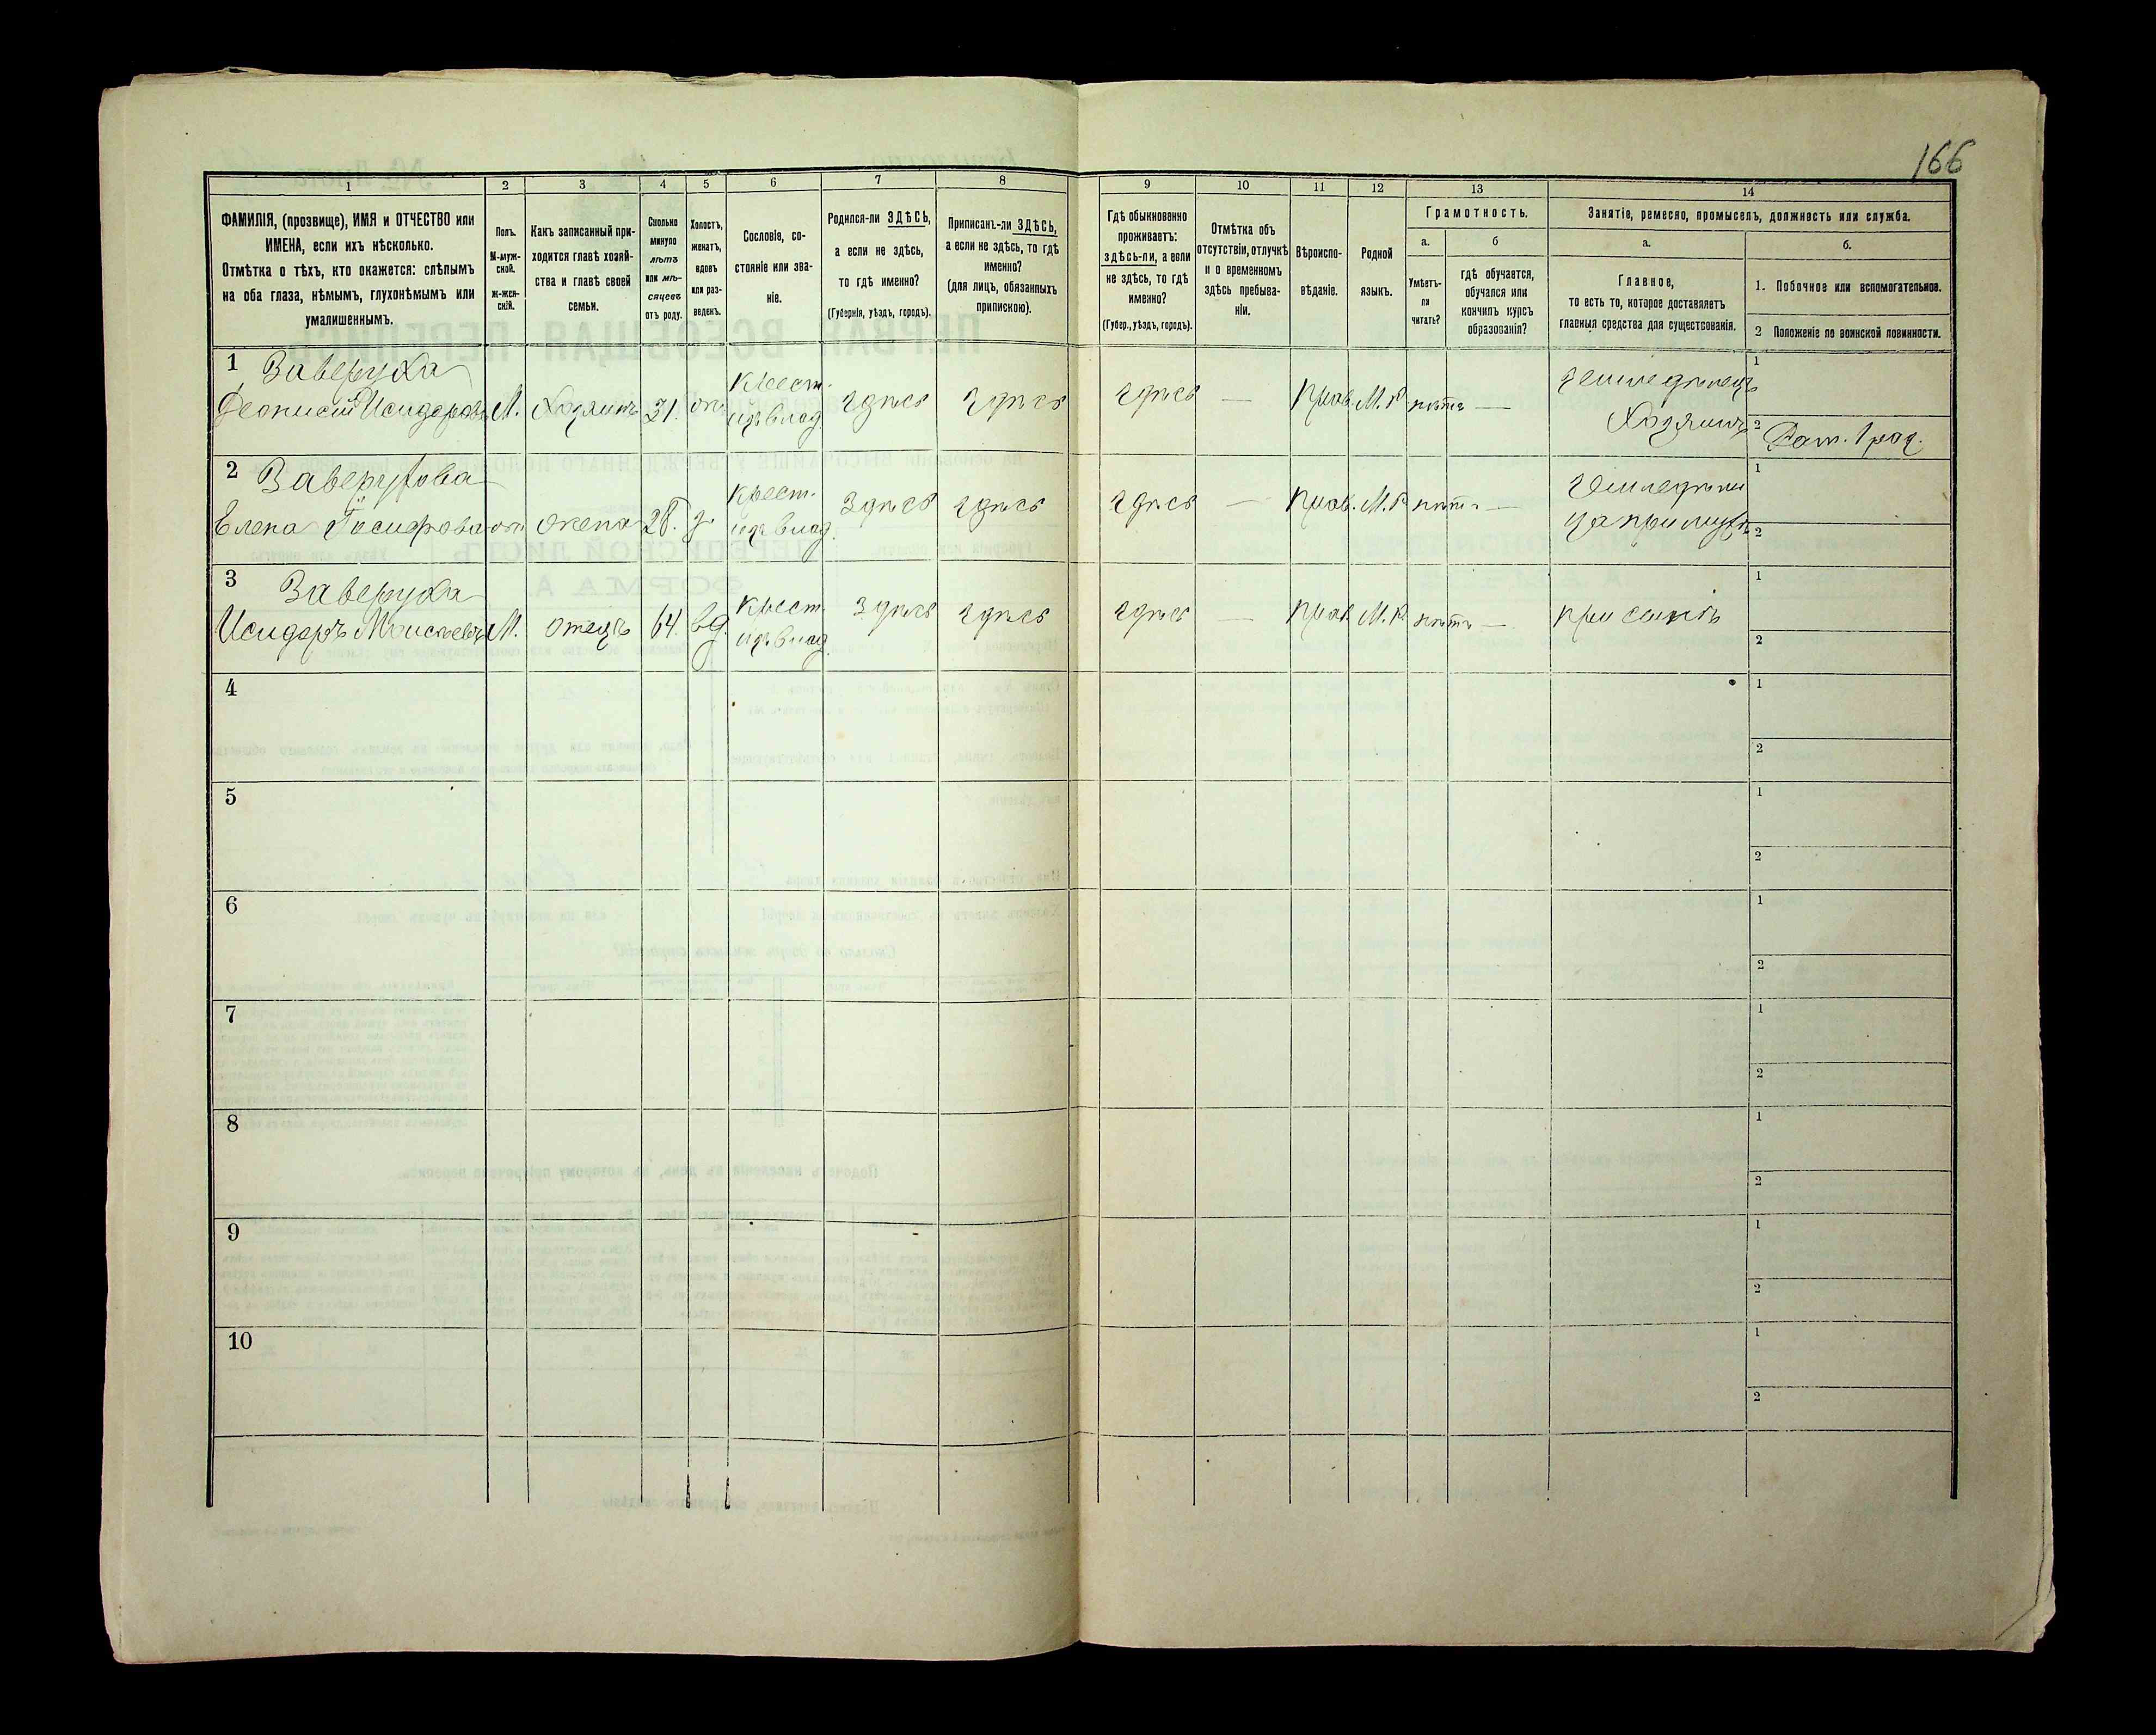 166
1
2
3
4
5
6
7
8
9
10
11
12
13
14
ФАМИЛІЯ, (прозвище), ИМЯ и ОТЧЕСТВО или
ИМЕНА, если ихъ нѣсколько.
Отмѣтка о тѣхъ, кто окажется: слѣпымъ
на оба глаза, нѣмымъ, глухонѣмымъ или
умалишеннымъ.
Полъ.
М-муж-
ской.
Ж-жен-
скій.
Какъ записанный при-
ходится главѣ хозяй-
ства и главѣ своей
семьи.
Сколько
минуло
лѣтъ
или мѣ-
сяцевъ
отъ роду.
Холостъ,
женатъ,
вдовъ
или раз-
веденъ.
Сословіе, со-
стояніе или зва-
ніе.
Родился-ли ЗДѢСЬ,
а если не здѣсь,
то гдѣ именно?
(Губернія, уѣздъ, городъ).
Приписанъ-ли ЗДѢСЬ,
а если не здѣсь, то гдѣ
именно?
(для лицъ, обязанныхъ
припискою).
Гдѣ обыкновенно
проживаетъ:
здѣсь-ли, а если
не здѣсь, то гдѣ
именно?
(Губер., уѣздъ, городъ).
Отмѣтка объ
отсутствіи, отлучкѣ
и о временномъ
здѣсь пребыва-
ніи.
Вѣроиспо-
вѣданіе.
Родной
языкъ.
Грамотность.
а.
Умѣетъ-
ли
читать?
б
гдѣ обучается,
обучался или
кончилъ курсъ
образованія?
Занятіе, ремесло, промыселъ, должность или служба.
а.
Главное,
то есть то, которое доставляетъ
главныя средства для существованія.
б.
1. Побочное или вспомогательное.
2 Положеніе по воинской повинности.
1 Заверуха
Деонисій Исидоровъ М. Хозяинъ 31. жен. Крест. изъ влад. здѣсь здѣсь здѣсь — Прав. М.Р. нѣтъ — земледѣлецъ
Хозяинъ
1
2 Рат. 1 раз.
2 Заверухова
Елена жен жена 28. з. Крест. изъ влад. Здѣсь здѣсь здѣсь — Прав. М.Р. нѣтъ —
1
2
3 Заверуха
Исидоръ Моисѣевъ М. отецъ 64. вд. Крест. изъ влад. здѣсь здѣсь здѣсь — Прав. М.Р. нѣтъ — при сынѣ
1
2
4
1
2
5
1
2
6
1
2
7
1
2
8
1
2
9
1
2
10
1
2